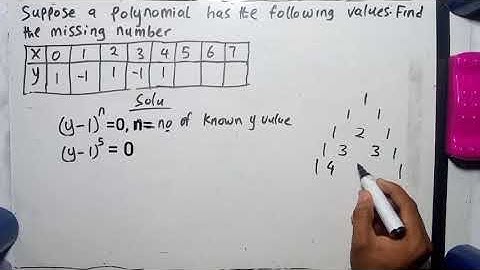 Suppose a polynomial has the following values. Find
the missing number
X 0 1 2 3 4 5 6 7
y 1 -1 1 -1 1
Solu
(y-1)ⁿ=0, n= no of known y value
(y-1)⁵ = 0
1
1 1
1 2 1
1 3 3 1
1 4 1